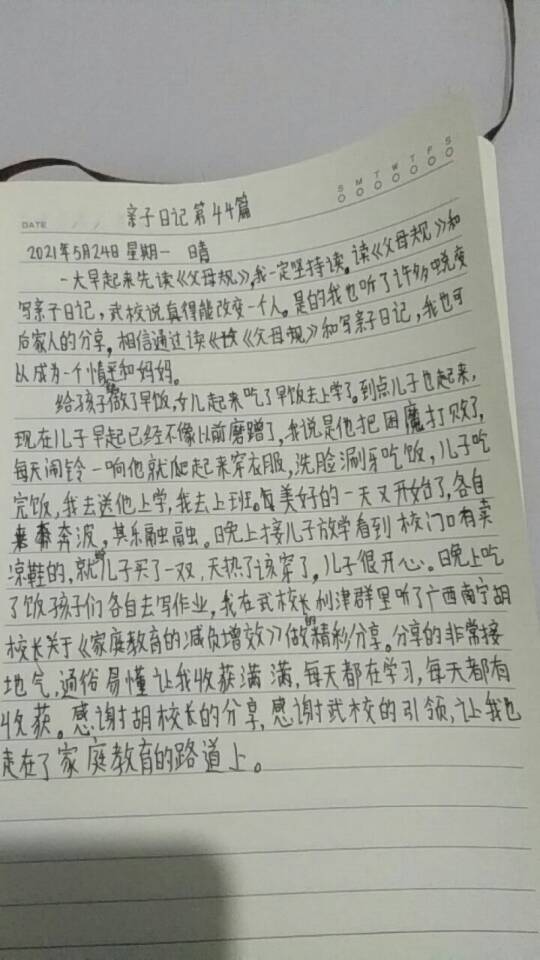 S M T W T F S
DATE
亲子日记第44篇
2021年5月24日 星期一 晴
一大早起来先读《父母规》,我一定坚持读。读《父母规》和
写亲子日记,武校说真得能改变一个人。是的我也听了许多蜕变
后家人的分享,相信通过读《父母规》和写亲子日记,我也可
以成为一个情平和妈妈。
给孩子做了早饭,女儿起来吃了早饭去上学了。到点儿子也起来,
现在儿子早起已经不像以前磨蹭了,我说是他把困魔打败了,
每天闹铃一响他就爬起来穿衣服,洗脸涮牙吃饭,儿子吃
完饭,我去送他上学,我去上班。每美好的一天又开始了,各自
奔波,其乐融融。晚上接儿子放学看到校门口有卖
凉鞋的,就给儿子买了一双,天热了该穿了,儿子很开心。晚上吃
了饭孩子们各自去写作业,我在武校长利津群里听了广西南宁胡
校长关于《家庭教育的减负增效》做的精彩分享。分享的非常接
地气,通俗易懂让我收获满满,每天都在学习,每天都有
收获。感谢胡校长的分享,感谢武校的引领,让我也
走在了家庭教育的路道上。